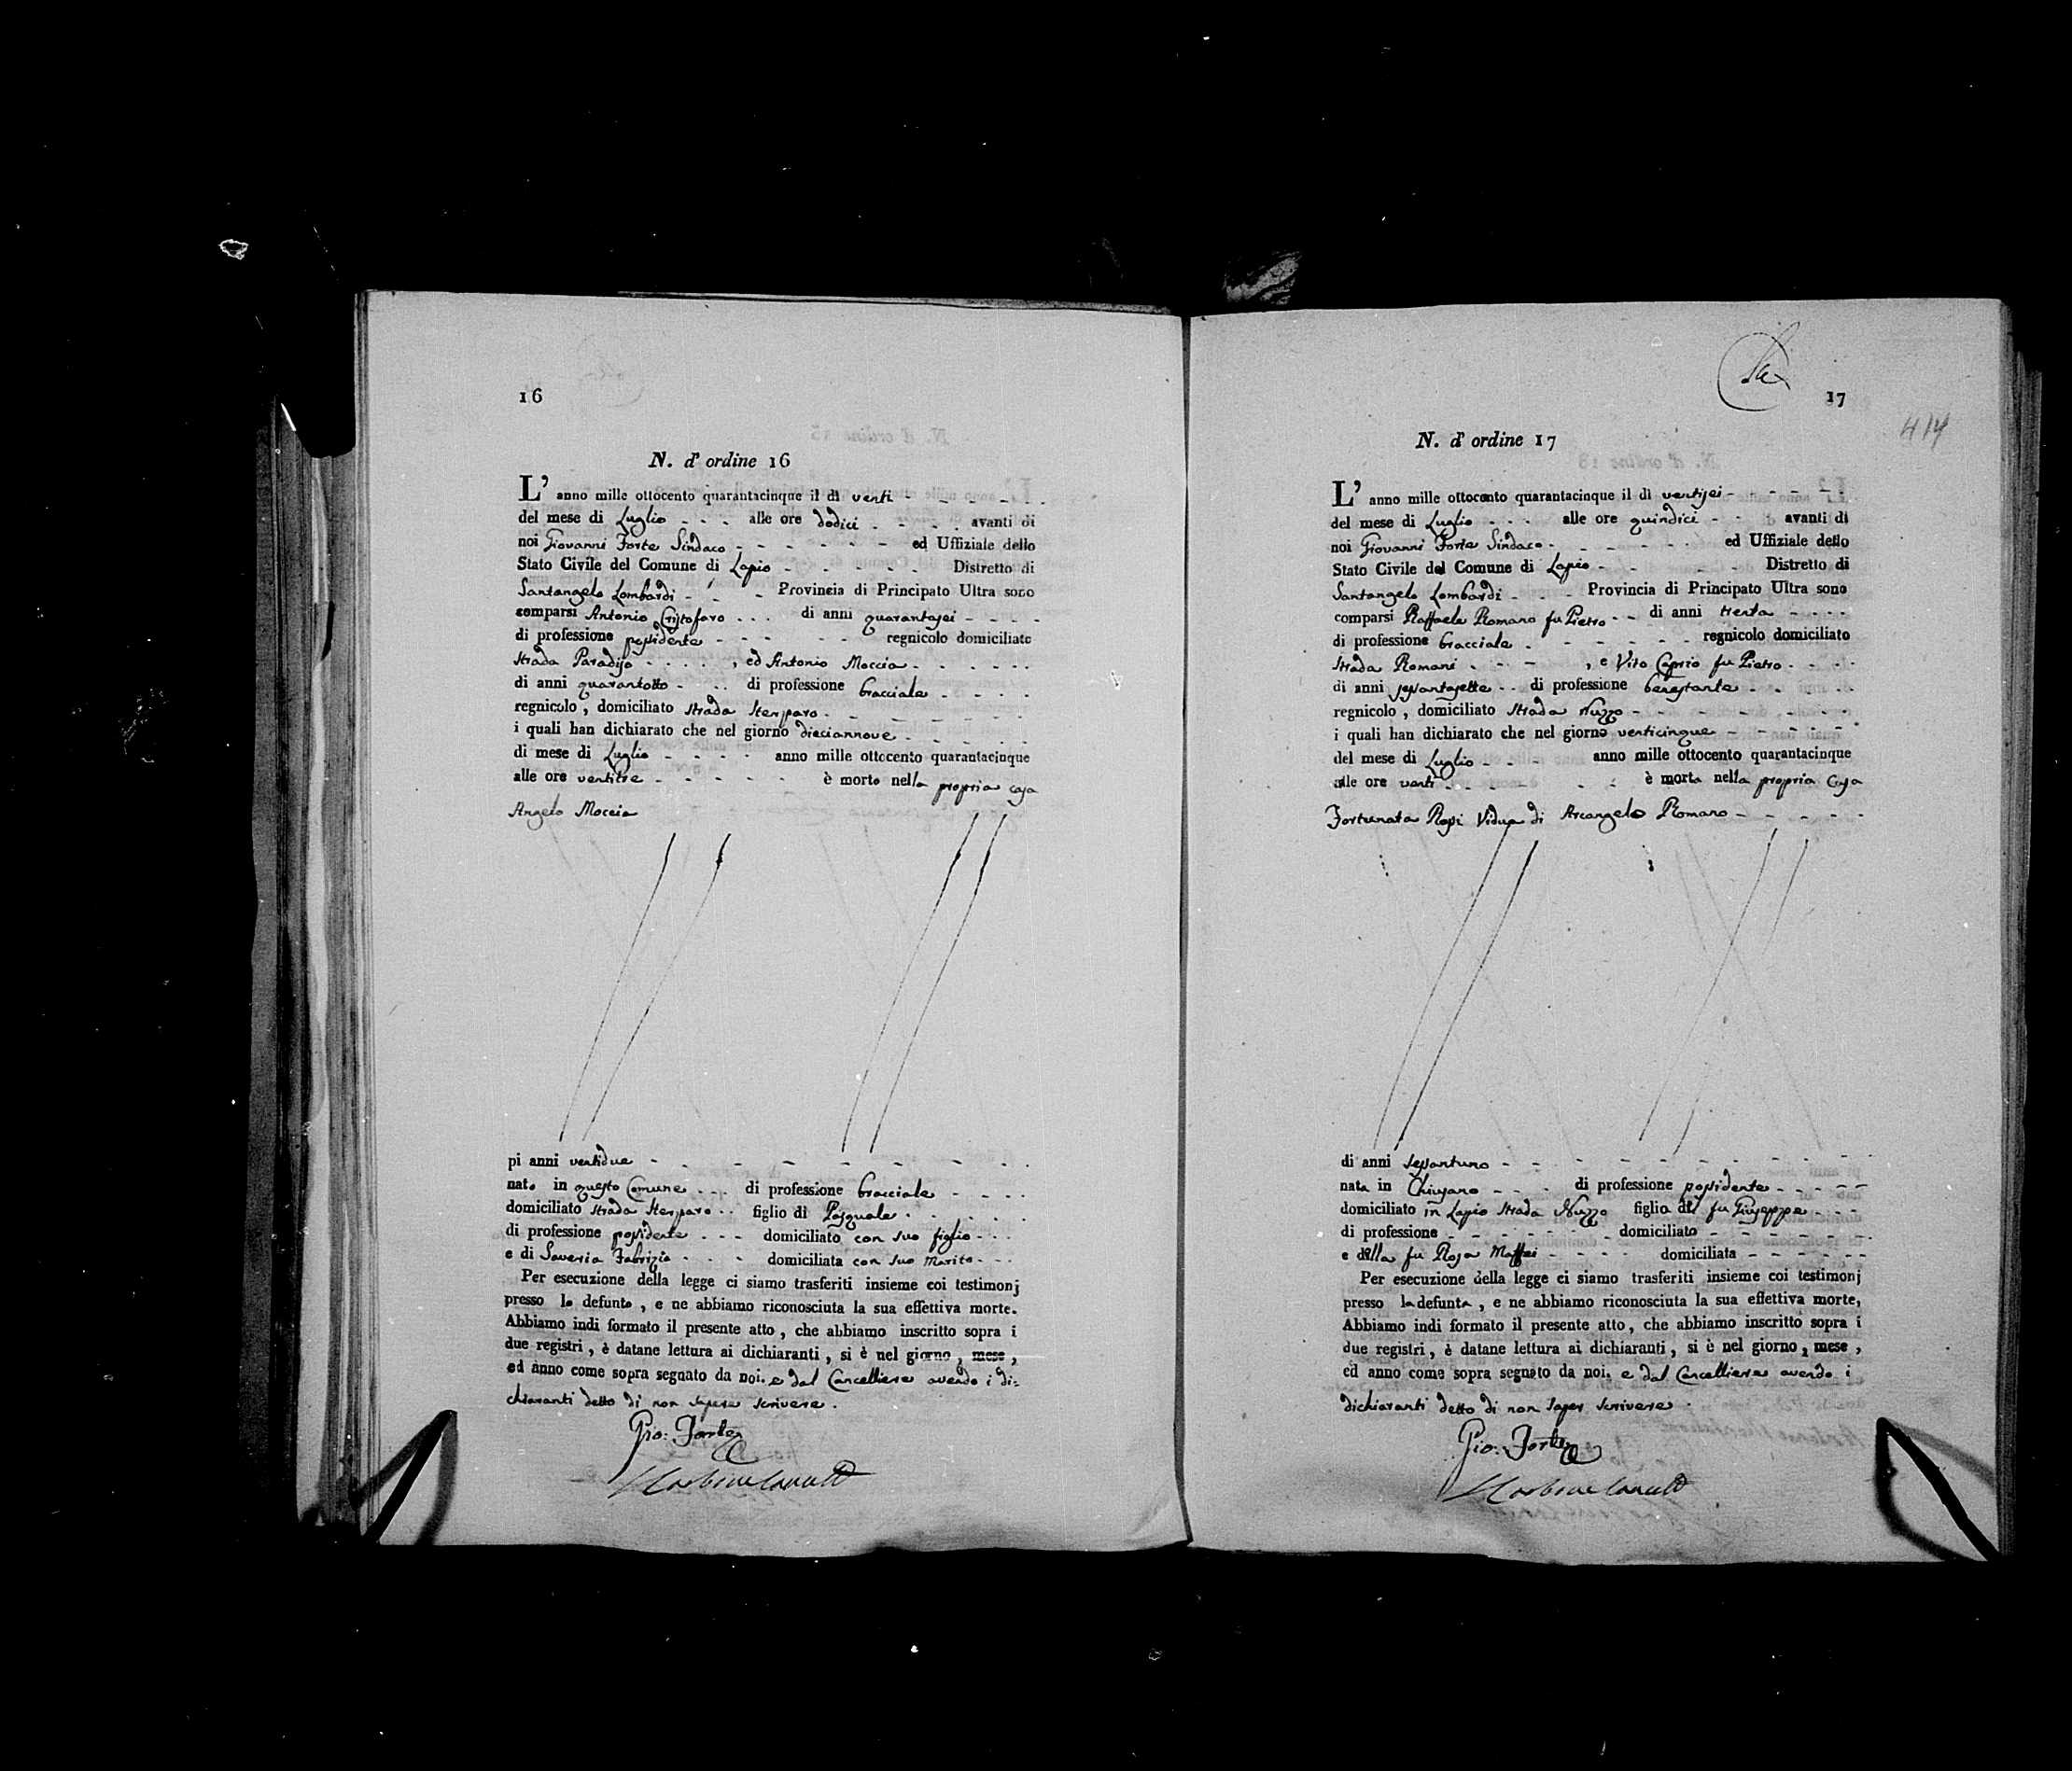 16
N. d' ordine 16
L' anno mille ottocento quarantacinque il dì venti - - - - -
del mese di Luglio - - - alle ore dodici - - - - avanti di
noi Giovanni Forte Sindaco - - - - - - ed Uffiziale dello
Stato Civile del Comune di Lapio - - - - - Distretto di
Santangelo Lombardi - - - Provincia di Principato Ultra sono
comparsi Antonio Cristofaro - - - di anni quarantasei - - - -
di professione possidente - - - - - regnicolo domiciliato
Strada Paradiso - - - - , ed Antonio Moccia - - - - - -
di anni quarantotto - - - di professione bracciale - - - -
regnicolo , domiciliato Strada - - - - - - -
i quali han dichiarato che nel giorno dieciannove - - - - -
di mese di Luglio - - - - anno mille ottocento quarantacinque
alle ore ventitre - - - - - - è morto nella propria casa
Angelo Moccia
pi anni ventidue - - - - - - - - -
nato in questo Comune - - - di professione bracciale - - - -
domiciliato Strada - - figlio di Pasquale - - - - - -
di professione possidente - - - domiciliato con suo figlio - - -
e di Saveria Fabrizio - - - domiciliata con suo Marito - - -
Per esecuzione della legge ci siamo trasferiti insieme coi testimonj
presso lo defunto , e ne abbiamo riconosciuta la sua effettiva morte.
Abbiamo indi formato il presente atto , che abbiamo inscritto sopra i
due registri , è datane lettura ai dichiaranti , si è nel giorno , mese ,
ed anno come sopra segnato da noi. e dal Cancelliere avendo i di=
chiaranti detto di non sapere scrivere .
Gio: Forte
17
414
N. d' ordine 17
L' anno mille ottocento quarantacinque il dì ventisei - - - - -
del mese di Luglio - - - alle ore quindici - - - avanti di
noi Giovanni Forte Sindaco - - - - - - ed Uffiziale dello
Stato Civile del Comune di Lapio - - - - Distretto di
Santangelo Lombardi - - - Provincia di Principato Ultra sono
comparsi Raffaele Romano fu Pietro - - di anni trenta - - - -
di professione bracciale - - - - - - regnicolo domiciliato
Strada Romani - - - , e Vito Caprio fu Pietro - - - -
di anni sessantasette - - di professione benestante - - -
regnicolo , domiciliato Strada Nuzzo - - - - - - -
i quali han dichiarato che nel giorno venticinque - - - - -
del mese di Luglio - - - anno mille ottocento quarantacinque
alle ore venti - - - - - - è morta nella propria casa
Fortunata Rossi Vidua di Arcangelo Romano - - - - -
di anni sessantuno - - - - - - - - - -
nata in Chiusano - - - di professione possidente - - - - -
domiciliato in Lapio Strada Nuzzo figlia del fu Giuseppe - - -
di professione - - - - - - domiciliato - - - - - -
e della fu Rosa Maffei - - - - domiciliata - - - - - -
Per esecuzione della legge ci siamo trasferiti insieme coi testimonj
presso la defunta , e ne abbiamo riconosciuta la sua effettiva morte,
Abbiamo indi formato il presente atto, che abbiamo inscritto sopra i
due registri , è datane lettura ai dichiaranti , si è nel giorno , mese ,
ed anno come sopra segnato da noi. e dal Cancelliere avendo i
dichiaranti detto di non saper scrivere .
Gio: Forte